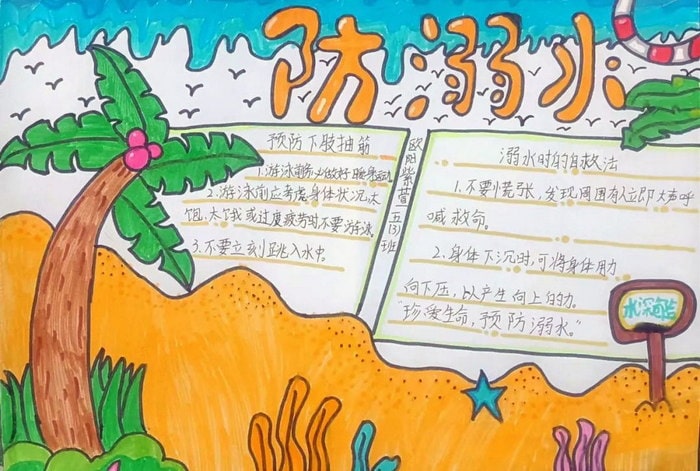 防溺水
预防下肢抽筋
1.游泳前务必做好暖身运动
2.游泳前应考虑身体状况,太
饱、太饿或过度疲劳时不要游泳。
3.不要立刻跳入水中。
欧阳紫萱 五(3)班
溺水时的自救法
1.不要慌张,发现周围有人立即大声呼
喊救命。
2.身体下沉时,可将身体用力
向下压,以产生向上的力。
"珍爱生命,预防溺水。"
水深危险